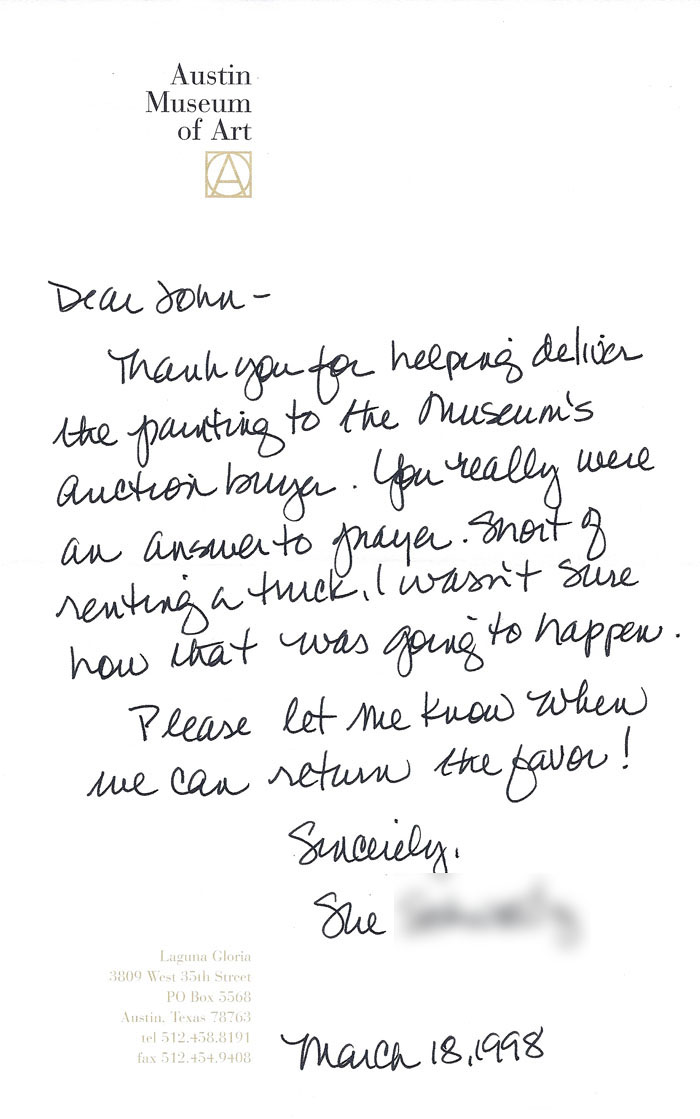 Austin
Museum
of Art
A
Dear John -
Thank you for helping deliver
the painting to the Museum's
auction buyer. You really were
an answer to prayer. Short of
renting a truck, I wasn't sure
how that was going to happen.
Please let me know when
we can return the favor!
Sincerely,
Sue
Laguna Gloria
3809 West 35th Street
PO Box 5568
Austin, Texas 78763
tel 512.458.8191
fax 512.454.9408
March 18, 1998